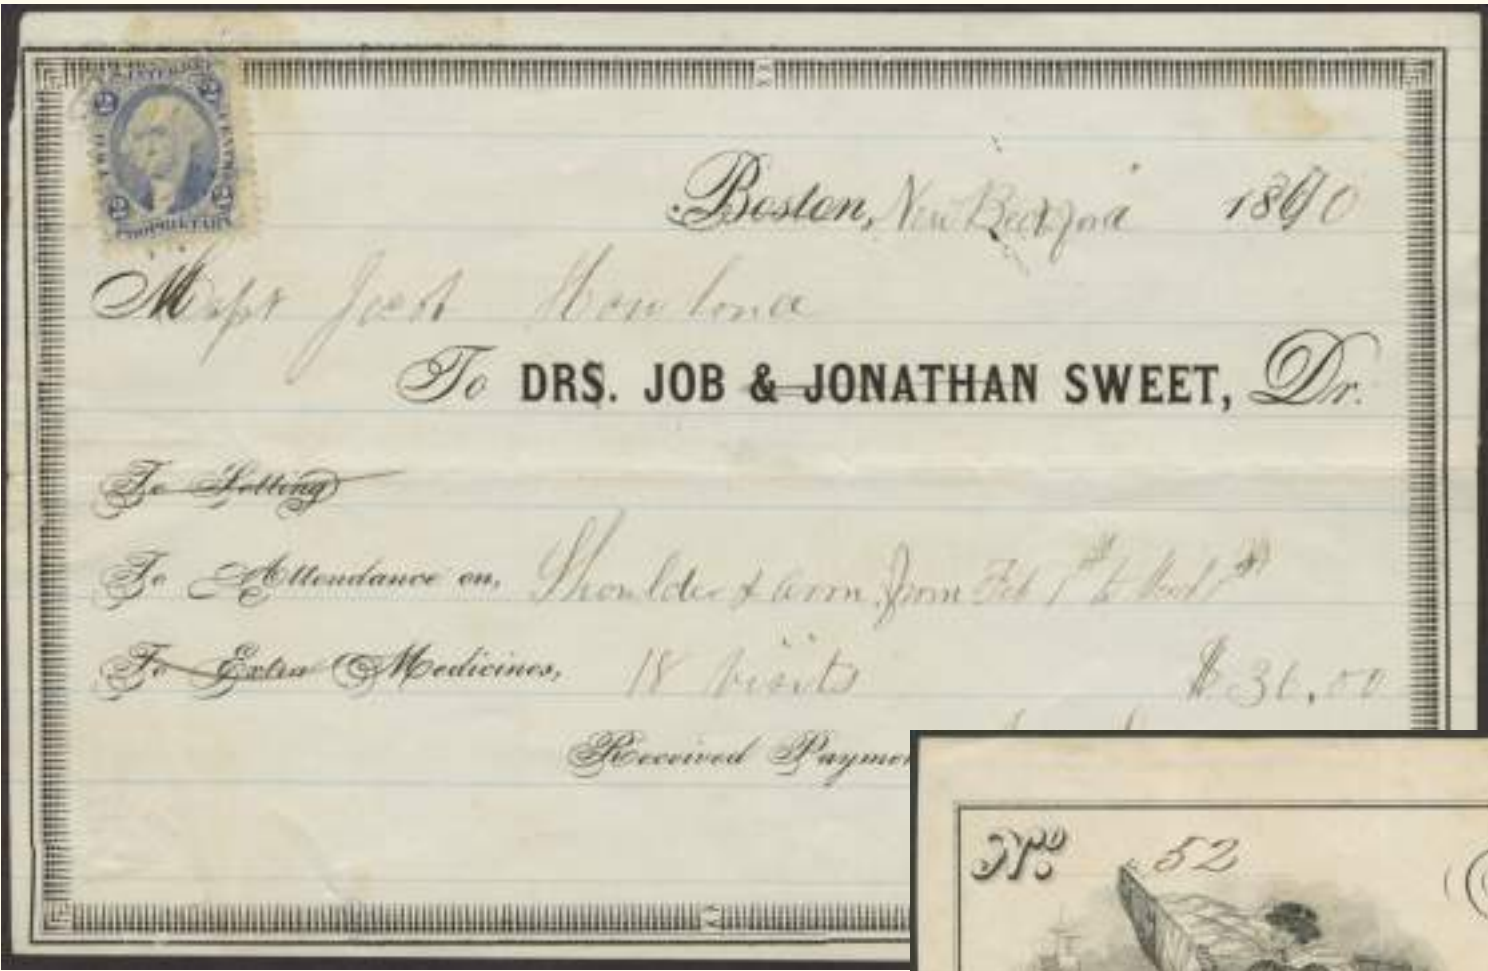 INTER. REV.
TWO CENTS
PROPRIETARY
Boston, New Bedford 1870
Capt Jacob Howland
To DRS. JOB & JONATHAN SWEET, Dr.
To Setting
To Attendance on, Shoulder & arm from Feb 1st to
To Extra Medicines, 18 visits $36.00
Received Paymen
No. 52